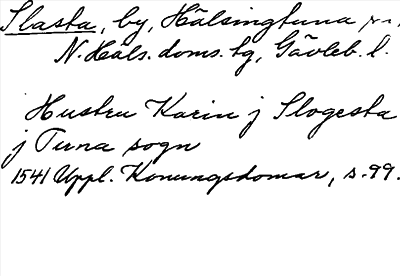 Slasta, by, Hälsingtuna sn,
N. Häls. doms. tg, Gävleb. l.
Hustru Karin j Slogesta
j Tuna sogn
1541 Uppl. Konungsdomar, s. 99.